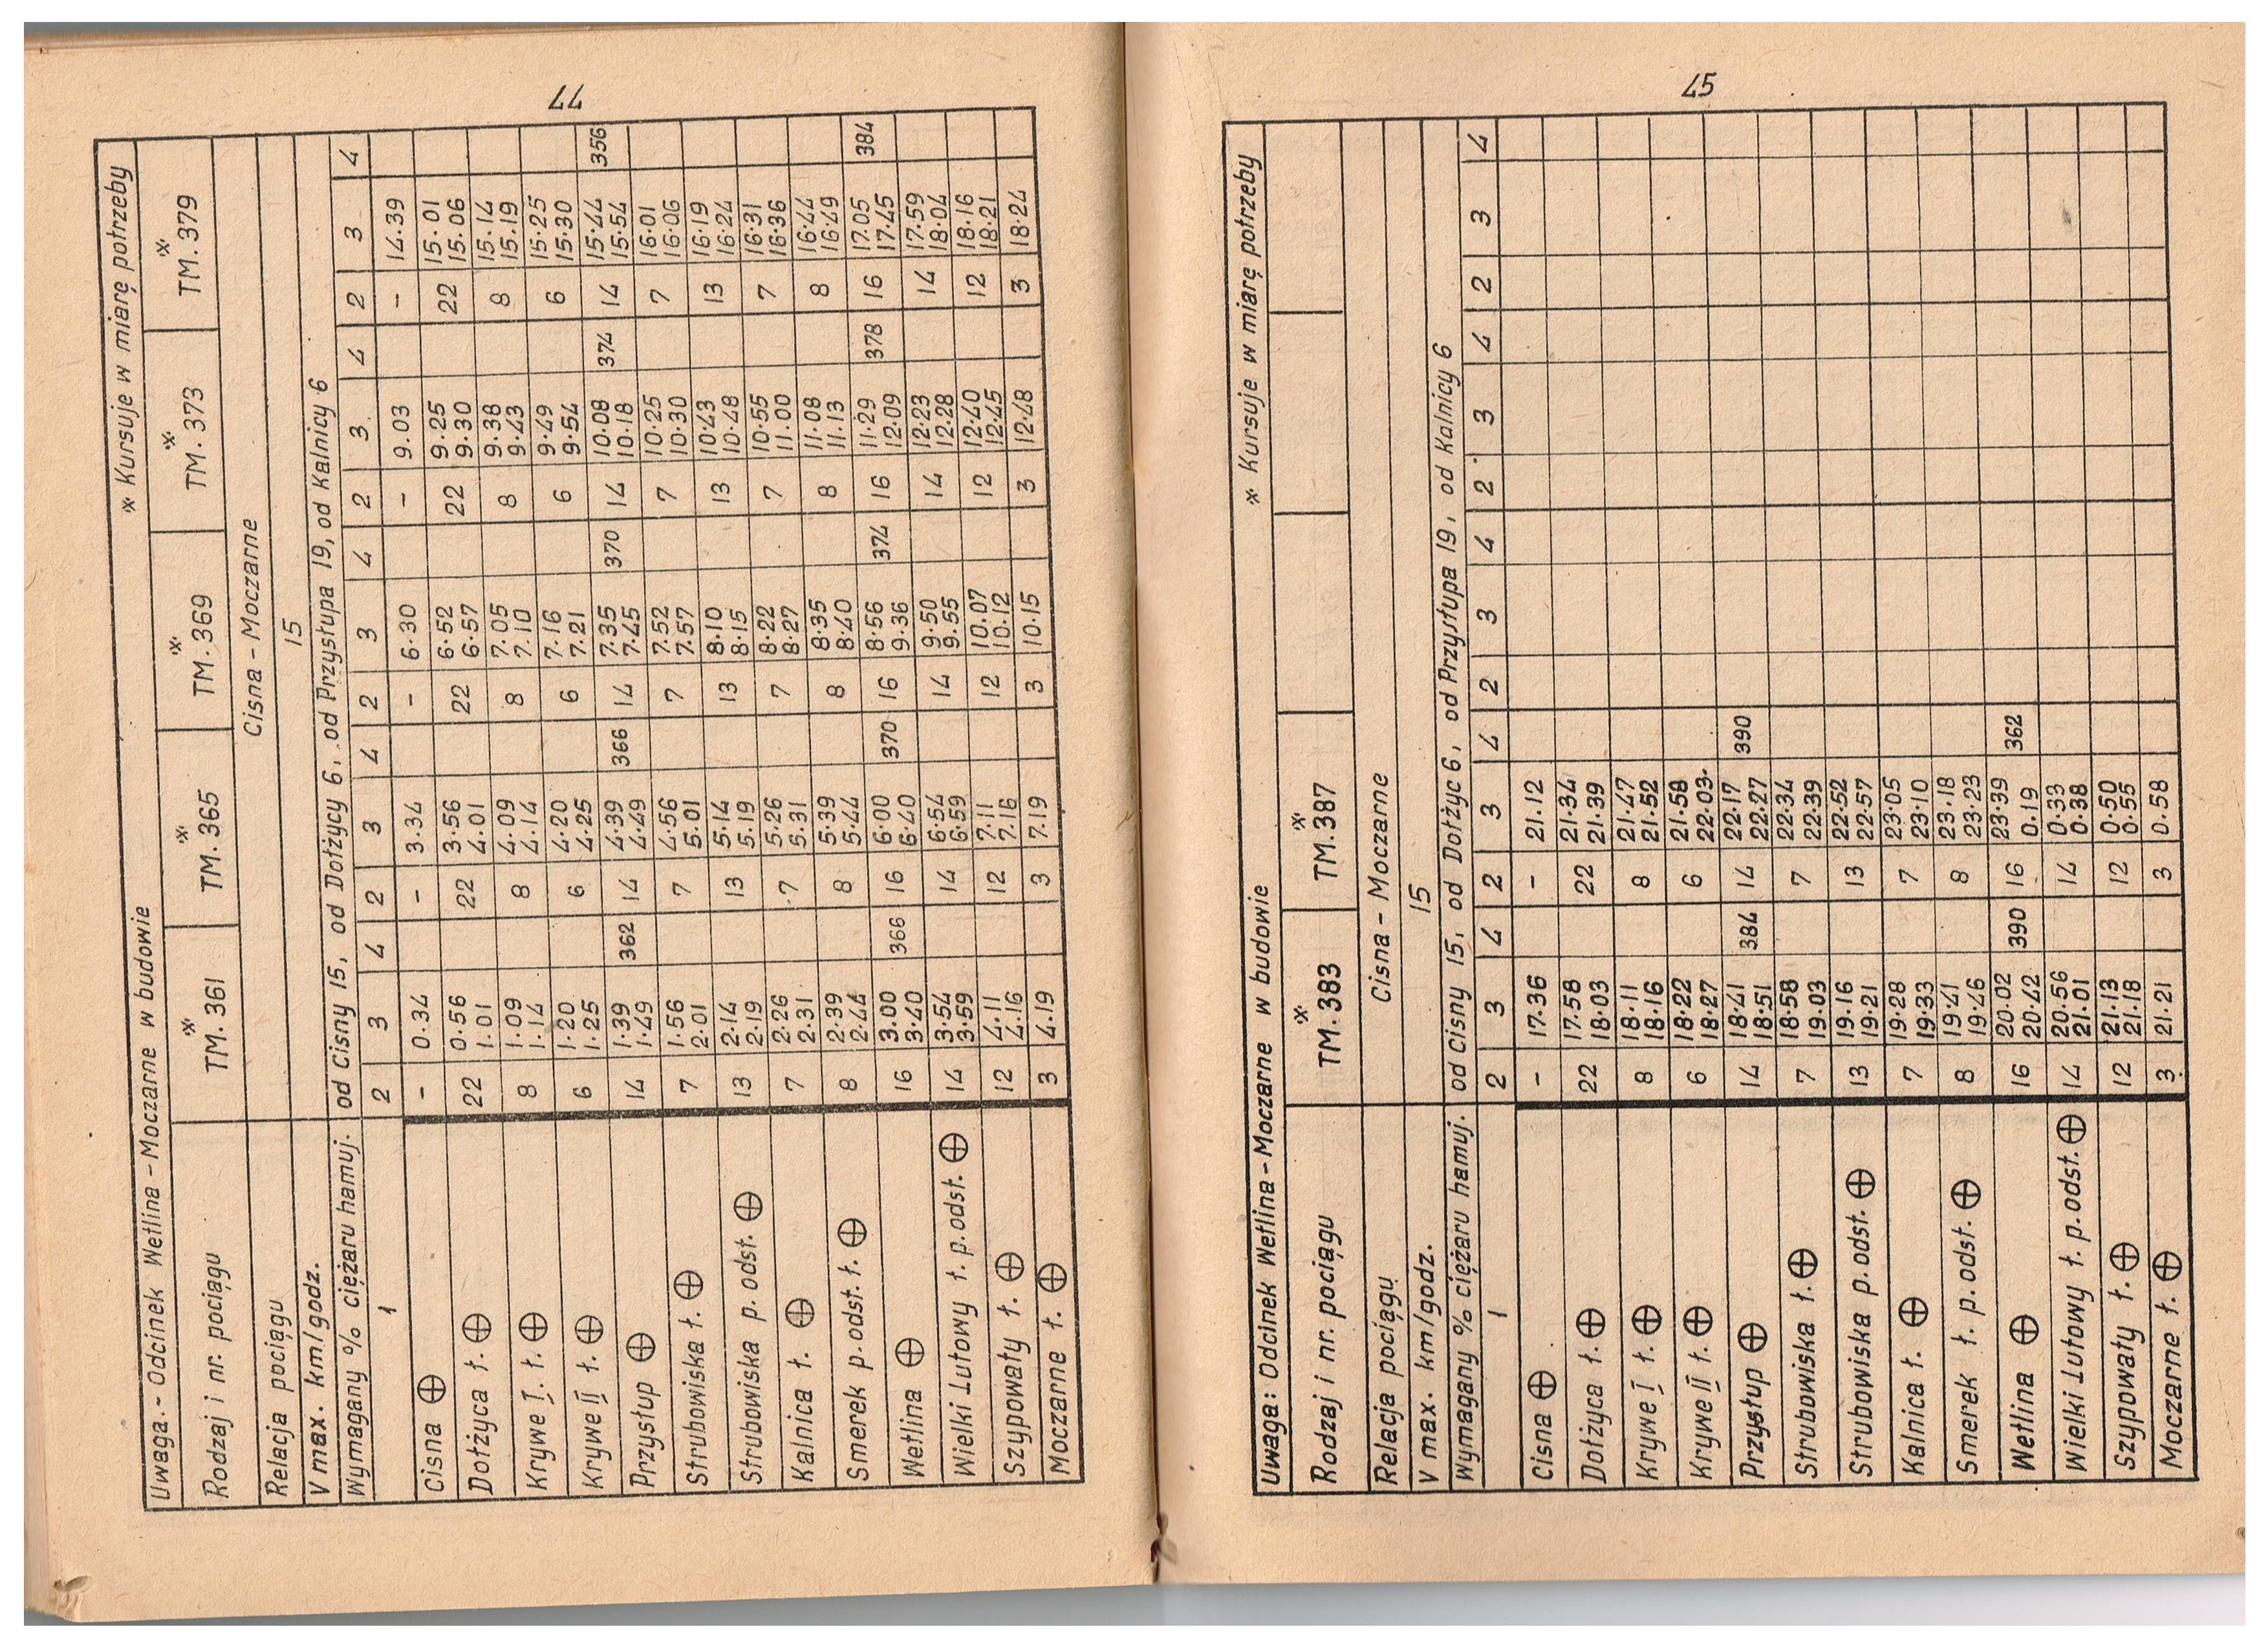 44
Uwaga - Odcinek Wetlina - Moczarne w budowie * Kursuje w miarę potrzeby
Rodzaj i nr. pociągu * TM. 361 * TM. 365 * TM. 369 * TM. 373 * TM. 379
Relacja pociągu Cisna - Moczarne
V max. km/godz. 15
Wymagany % ciężaru hamuj. od Cisny 15, od Dołżycy 6, od Przystupa 19, od Kalnicy 6
1 2 3 4 2 3 4 2 3 4 2 3 4 2 3 4
Cisna ⊕ - 0.34 - 3.34 - 6.30 - 9.03 - 14.39
Dołżyca ł. ⊕ 22 0.56 22 3.56 22 6.52 22 9.25 22 15.01
1.01 4.01 6.57 9.30 15.06
Krywe I ł. ⊕ 8 1.09 8 4.09 8 7.05 8 9.38 8 15.14
1.14 4.14 7.10 9.43 15.19
Krywe II ł. ⊕ 6 1.20 6 4.20 6 7.16 6 9.49 6 15.25
1.25 4.25 7.21 9.54 15.30
Przystup ⊕ 14 1.39 362 14 4.39 366 14 7.35 370 14 10.08 374 14 15.44 356
1.49 4.49 7.45 10.18 15.54
Strubowiska ł. ⊕ 7 1.56 7 4.56 7 7.52 7 10.25 7 16.01
2.01 5.01 7.57 10.30 16.06
Strubowiska p. odst. ⊕ 13 2.14 13 5.14 13 8.10 13 10.43 13 16.19
2.19 5.19 8.15 10.48 16.24
Kalnica ł. ⊕ 7 2.26 7 5.26 7 8.22 7 10.55 7 16.31
2.31 5.31 8.27 11.00 16.36
Smerek p. odst. ł. ⊕ 8 2.39 8 5.39 8 8.35 8 11.08 8 16.44
2.44 5.44 8.40 11.13 16.49
Wetlina ⊕ 16 3.00 366 16 6.00 370 16 8.56 374 16 11.29 378 16 17.05 384
3.40 6.40 9.36 12.09 17.45
Wielki Lutowy ł. p. odst. ⊕ 14 3.54 14 6.54 14 9.50 14 12.23 14 17.59
3.59 6.59 9.55 12.28 18.04
Szypowaty ł. ⊕ 12 4.11 12 7.11 12 10.07 12 12.40 12 18.16
4.16 7.16 10.12 12.45 18.21
Moczarne ł. ⊕ 3 4.19 3 7.19 3 10.15 3 12.48 3 18.24
45
Uwaga: Odcinek Wetlina - Moczarne w budowie * Kursuje w miarę potrzeby
Rodzaj i nr. pociągu * TM. 383 * TM. 387
Relacja pociągu Cisna - Moczarne
V max. km/godz. 15
Wymagany % ciężaru hamuj. od Cisny 15, od Dołżyc 6, od Przystupa 19, od Kalnicy 6
1 2 3 4 2 3 4 2 3 4 2 3 4 2 3 4
Cisna ⊕ - 17.36 - 21.12
Dołżyca ł. ⊕ 22 17.58 22 21.34
18.03 21.39
Krywe I ł. ⊕ 8 18.11 8 21.47
18.16 21.52
Krywe II ł. ⊕ 6 18.22 6 21.58
18.27 22.03
Przystup ⊕ 14 18.41 384 14 22.17 390
18.51 22.27
Strubowiska ł. ⊕ 7 18.58 7 22.34
19.03 22.39
Strubowiska p. odst. ⊕ 13 19.16 13 22.52
19.21 22.57
Kalnica ł. ⊕ 7 19.28 7 23.05
19.33 23.10
Smerek ł. p. odst. ⊕ 8 19.41 8 23.18
19.46 23.23
Wetlina ⊕ 16 20.02 390 16 23.39 362
20.42 0.19
Wielki Lutowy ł. p. odst. ⊕ 14 20.56 14 0.33
21.01 0.38
Szypowaty ł. ⊕ 12 21.13 12 0.50
21.18 0.55
Moczarne ł. ⊕ 3 21.21 3 0.58